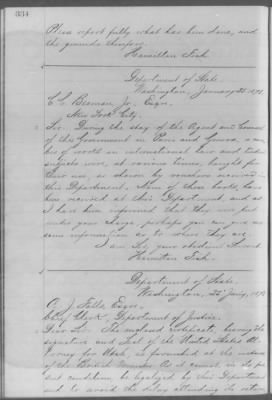 334
Please report fully what has been done, and
the grounds therefor.
Hamilton Fish
Department of State,
Washington, January 1873.
C. C. Beaman Jr. Esqre.
New York City.
Sir: During the stay of the Agent and Counsel
of this Government in Paris and Geneva, a num-
ber of works on international law and kindred
subjects were, at various times, bought for
their use, as shown by vouchers received in
this Department. None of these books, have
been received at this Department, and as
I have been informed that they were put
under your charge, perhaps you can give me
some information as to where they are.
I am, Sir, your obedient Servant
Hamilton Fish.
Department of State,
Washington, Jan'y, 1873
A. J. Falls Esqre.
Chief Clerk, Department of Justice.
Dear Sir: The enclosed certificate, bearing the
signature and seal of the United States At-
torney for Utah, is forwarded at the instance
of the British Minister. As it cannot, in its pre
sent condition, be legalized by this Department
and to avoid the delay attending its return